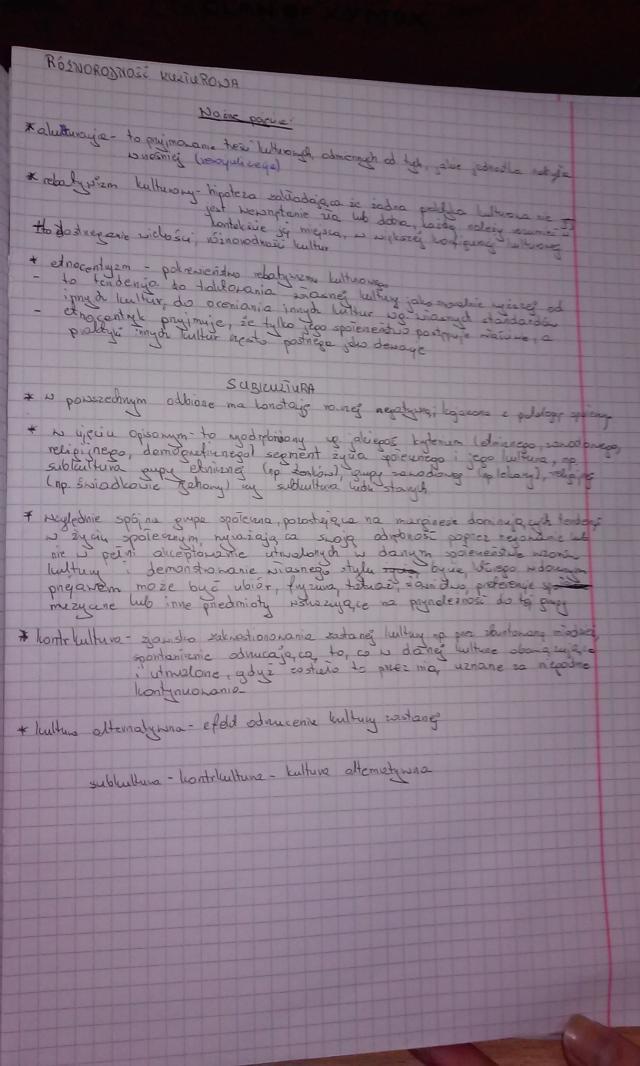 RÓŻNORODNOŚĆ KULTUROWA
Ważne pojęcia:
* akulturacja - to przyjmowanie treści kulturowych, odmiennych od tych, jakie jednostka nabyła
wcześniej
* relatywizm kulturowy - hipoteza zakładająca że żadna praktyka kulturowa nie
jest wewnętrznie zła lub dobra, każdą należy rozumieć
kontekście jej miejsca, w większej konfiguracji kulturowej
to dostrzeganie wielości, różnorodność kultur
* etnocentryzm - relatywizmu kulturowego
- to tendencja do traktowania własnej kultury jako moralnie wyższej od
innych kultur, do oceniania innych kultur wg własnych standardów
- etnocentryk przyjmuje, że tylko jego społeczeństwo postępuje właściwie, a
praktyki innych kultur często postrzega jako dewacje
SUBKULTURA
* w powszechnym odbiorze ma konotacje raczej negatywną, kojarzona z patologią społeczną
* w ujęciu opisowym - to wyodrębniony wg jakiegoś kryterium (etnicznego, zawodowego,
religijnego, demograficznego) segment życia społecznego i jego kultura, np
subkultura grupy etnicznej (np żydów), grupy zawodowej (np lekarzy), religijnej
(np. świadkowie Jehowy) czy subkultura ludzi starych
* względnie spójna grupa społeczna, pozostająca na marginesie dominujących tendencji
w życiu społecznym, wyrażająca swoją odrębność poprzez negowanie lub
nie w pełni akceptowanie utrwalonych w danym społeczeństwie wzorów
kultury i demonstrowanie własnego stylu bycia, którego widocznym
przejawem może być ubiór, fryzura, tatuaż, preferencje
muzyczne lub inne przedmioty wskazujące na przynależność do tej grupy
* kontrkultura - zjawisko zakwestionowania zastanej kultury np przez zbuntowaną młodzież,
spontanicznie odrzucającą, to, co w danej kulturze obowiązujące
i utrwalone, gdyż zostało to przez nią, uznane za niegodne
kontynuowania
* kultura alternatywna - efekt odrzucenia kultury zastanej
subkultura - kontrkultura - kultura alternatywna